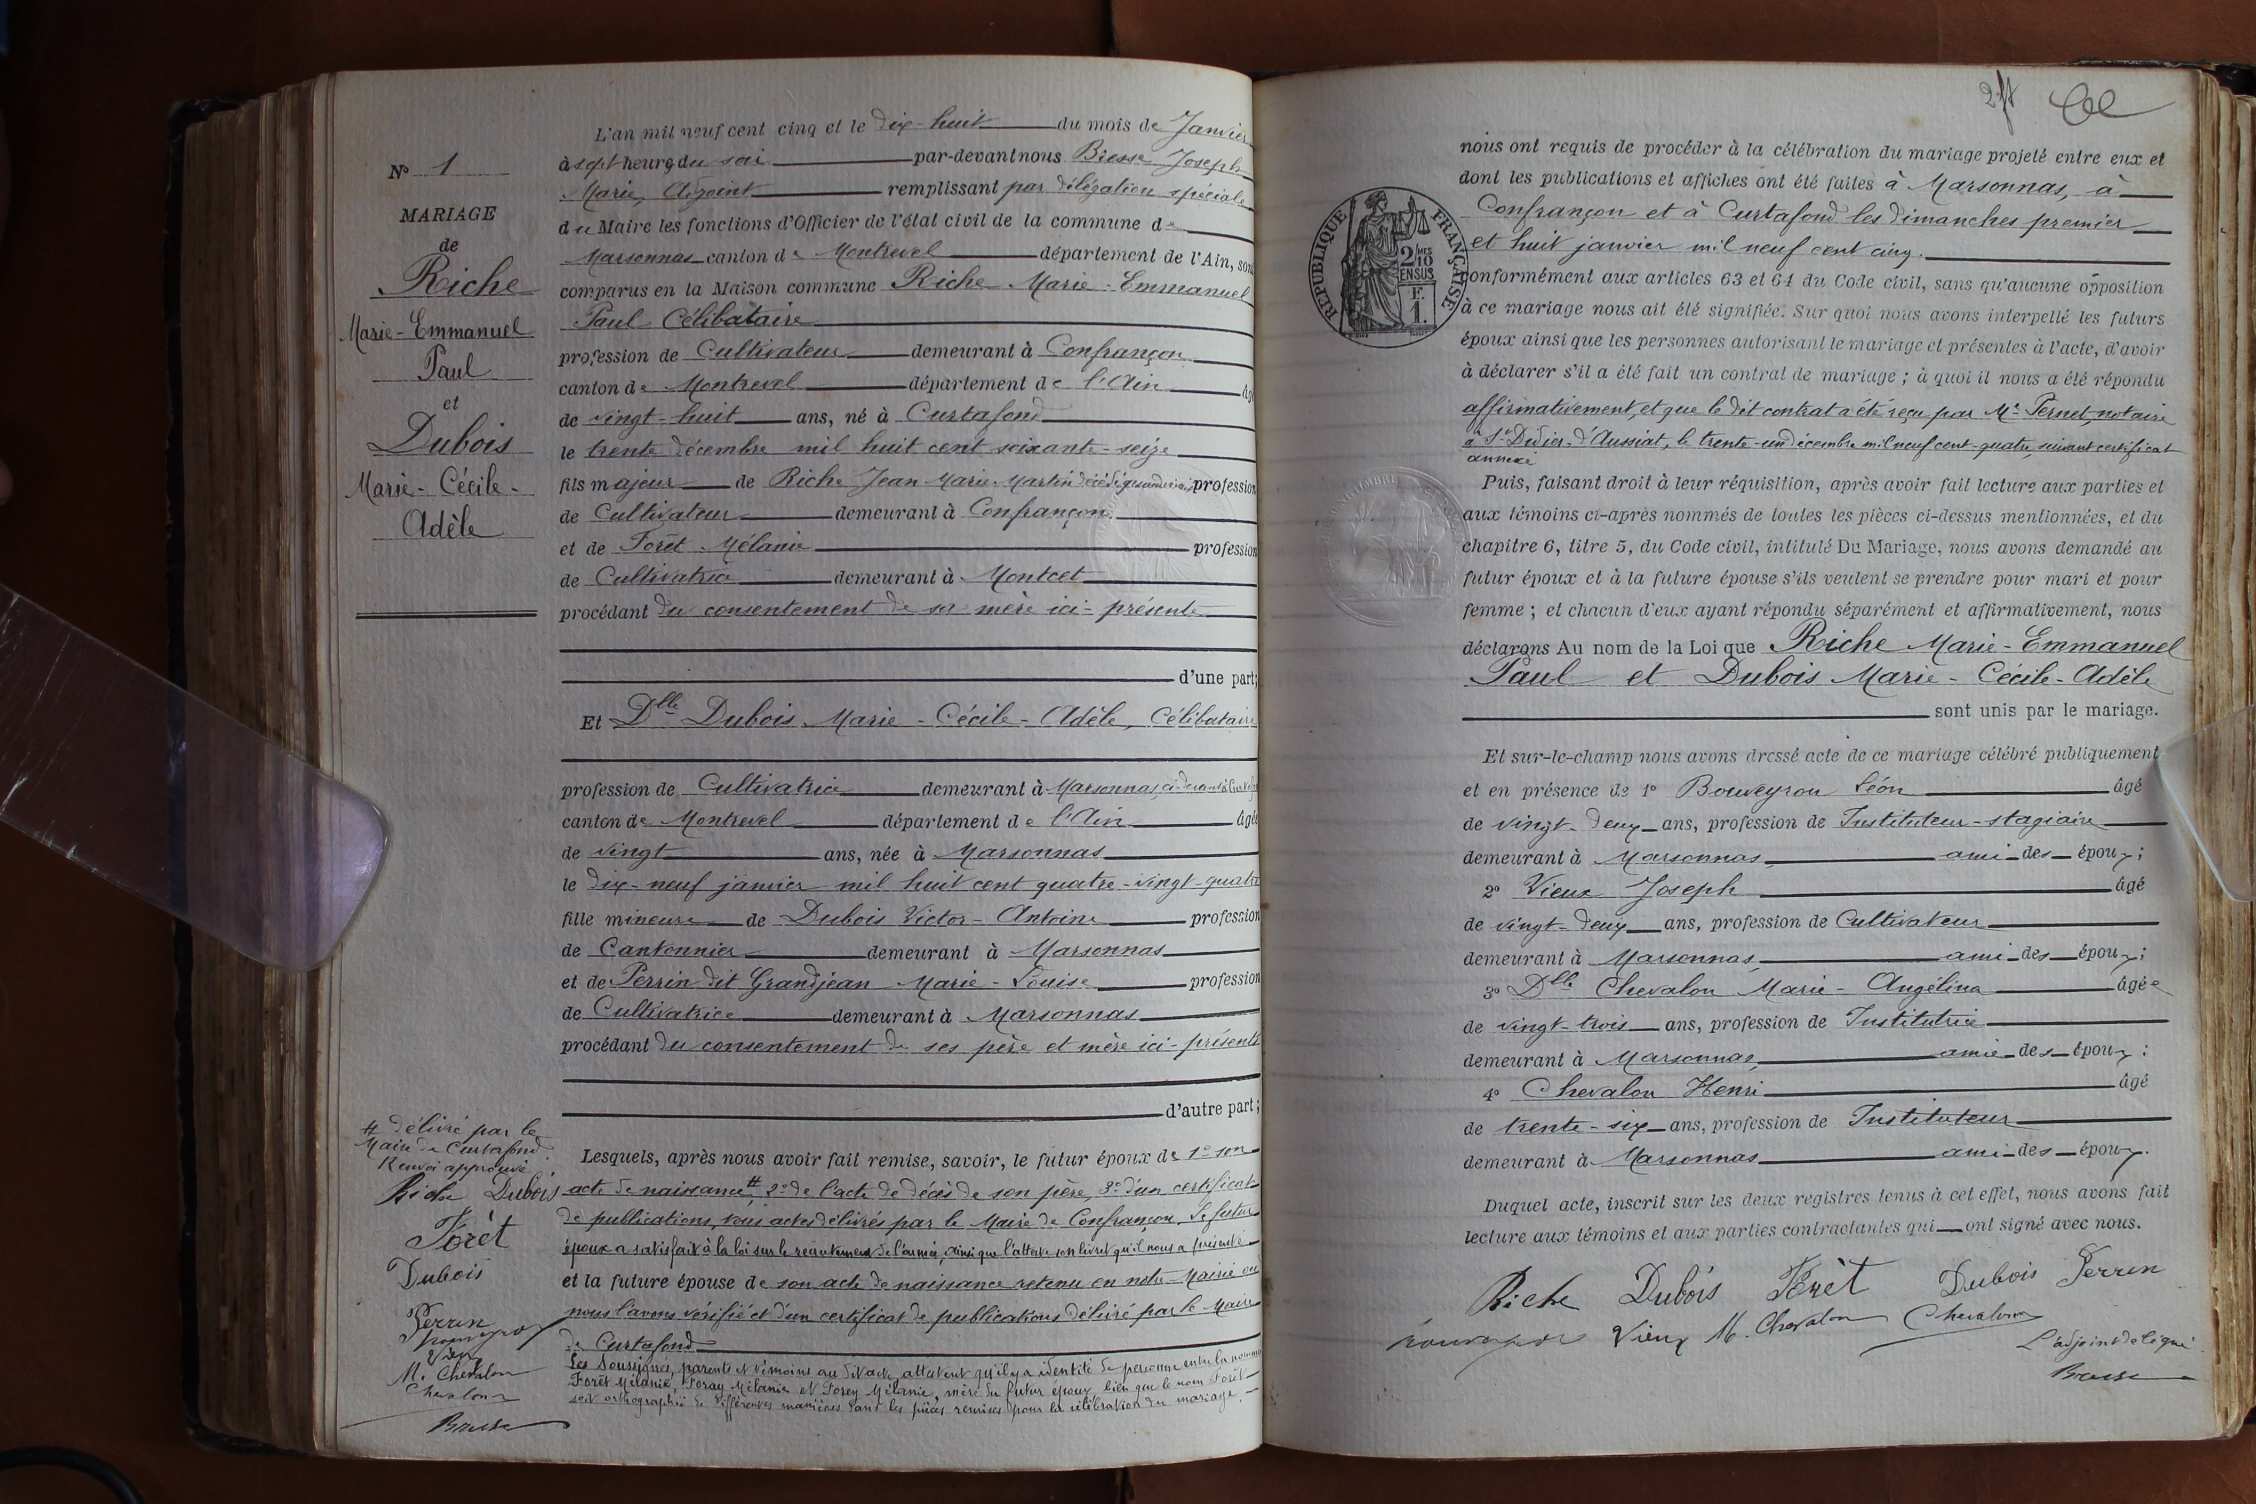 N° 1
MARIAGE
de
Riche
Marie-Emmanuel
Paul
et
Dubois
Marie-Cécile-
Adèle
L'an mil neuf cent cinq et le dix-huit du mois de Janvier
à sept heures du soir par-devant nous Bresse Joseph
Marie, Adjoint remplissant par délégation spéciale
du Maire les fonctions d'Officier de l'état civil de la commune de
Marsonnas canton de Montrevel département de l'Ain, sont
comparus en la Maison commune Riche Marie-Emmanuel
Paul Célibataire
profession de Cultivateur demeurant à Confrançon
canton de Montrevel département de l'Ain âgé
de vingt-huit ans, né à Curtafond
le trente décembre mil huit cent soixante-seize
fils majeur de Riche Jean-Marie-Martin décédé profession
de Cultivateur demeurant à Confrançon
et de Forêt Mélanie profession
de Cultivatrice demeurant à Montcet
procédant du consentement de sa mère ici-présente
d'une part;
Et Dlle Dubois Marie-Cécile-Adèle, Célibataire
profession de Cultivatrice demeurant à Marsonnas, ci-devant à
canton de Montrevel département de l'Ain âgée
de vingt ans, née à Marsonnas
le dix-neuf janvier mil huit cent quatre-vingt-quatre
fille mineure de Dubois Victor-Antoine profession
de Cantonnier demeurant à Marsonnas
et de Perrin dit Grandjean Marie-Louise profession
de Cultivatrice demeurant à Marsonnas
procédant du consentement de ses père et mère ici-présents
d'autre part;
Lesquels, après nous avoir fait remise, savoir, le futur époux de 1° son
acte de naissance #, 2° de l'acte de décès de son père, 3° d'un certificat
de publications, tous actes délivrés par le Maire de Confrançon. Le futur
époux a satisfait à la loi sur le recrutement de l'armée, ainsi que l'atteste son livret qu'il nous a présenté
et la future épouse de son acte de naissance retenu en notre Mairie où
nous l'avons vérifié et d'un certificat de publications délivré par le Maire
de Curtafond
Les soussignés, parents et témoins au dit acte attestent qu'il y a identité de personne entre la nommée
Forêt Mélanie, Foray Mélanie et Forey Mélanie, mère du futur époux bien que le nom Forêt
soit orthographié de différentes manières dans les pièces remises pour la célébration du mariage.
# délivré par le
Maire de Curtafond
Renvoi approuvé
Riche Dubois
Forêt
Dubois
Perrin
Vieux
M. Chevalon
Chevalon
Bresse
2 ft
nous ont requis de procéder à la célébration du mariage projeté entre eux et
dont les publications et affiches ont été faites à Marsonnas, à
Confrançon et à Curtafond les dimanches premier
et huit janvier mil neuf cent cinq.
conformément aux articles 63 et 64 du Code civil, sans qu'aucune opposition
à ce mariage nous ait été signifiée. Sur quoi nous avons interpellé les futurs
époux ainsi que les personnes autorisant le mariage et présentes à l'acte, d'avoir
à déclarer s'il a été fait un contrat de mariage; à quoi il nous a été répondu
affirmativement, et que le dit contrat a été reçu par Me Pernet, notaire
à St-Didier-d'Aussiat, le trente-un décembre mil neuf cent-quatre, suivant certificat
annexé
RÉPUBLIQUE FRANÇAISE
2/10
EN SUS
F.
1.
Puis, faisant droit à leur réquisition, après avoir fait lecture aux parties et
aux témoins ci-après nommés de toutes les pièces ci-dessus mentionnées, et du
chapitre 6, titre 5, du Code civil, intitulé Du Mariage, nous avons demandé au
futur époux et à la future épouse s'ils veulent se prendre pour mari et pour
femme; et chacun d'eux ayant répondu séparément et affirmativement, nous
déclarons Au nom de la Loi que Riche Marie-Emmanuel
Paul et Dubois Marie-Cécile-Adèle
sont unis par le mariage.
Et sur-le-champ nous avons dressé acte de ce mariage célébré publiquement
et en présence de 1° Bouveyron Léon âgé
de vingt-deux ans, profession de Instituteur-stagiaire
demeurant à Marsonnas, ami des époux;
2° Vieux Joseph âgé
de vingt-deux ans, profession de Cultivateur
demeurant à Marsonnas, ami des époux;
3° Dlle Chevalon Marie-Angélina âgée
de vingt-trois ans, profession de Institutrice
demeurant à Marsonnas, amie des époux;
4° Chevalon Henri âgé
de trente-six ans, profession de Instituteur
demeurant à Marsonnas ami des époux.
Duquel acte, inscrit sur les deux registres tenus à cet effet, nous avons fait
lecture aux témoins et aux parties contractantes qui ont signé avec nous.
Riche Dubois Forêt Dubois Perrin
Vieux M. Chevalon Chevalon
L'adjoint délégué
Bresse